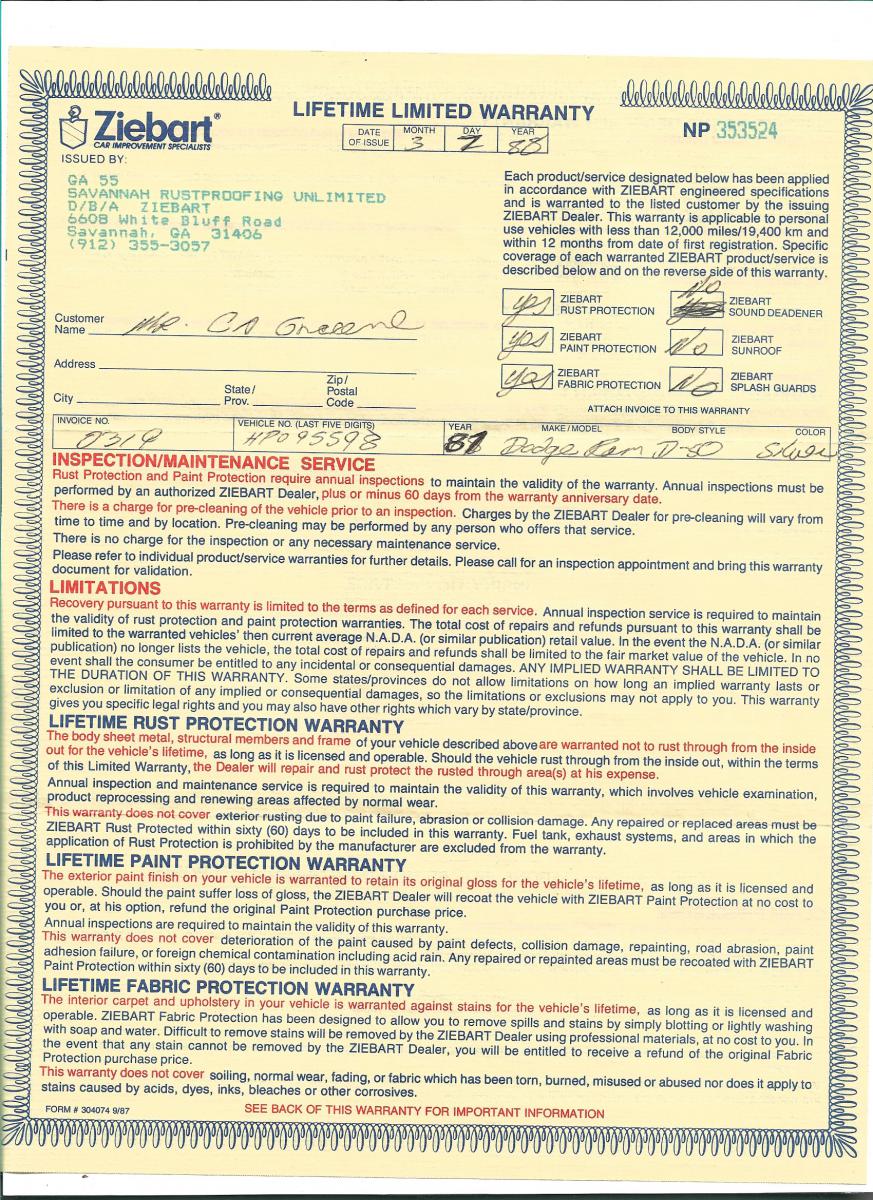 LIFETIME LIMITED WARRANTY
Ziebart®
CAR IMPROVEMENT SPECIALISTS
DATE OF ISSUE MONTH 3 DAY 7 YEAR 88
NP 353524
ISSUED BY:
GA 55
SAVANNAH RUSTPROOFING UNLIMITED
D/B/A ZIEBART
6608 White Bluff Road
Savannah, GA 31406
(912) 355-3057
Each product/service designated below has been applied
in accordance with ZIEBART engineered specifications
and is warranted to the listed customer by the issuing
ZIEBART Dealer. This warranty is applicable to personal
use vehicles with less than 12,000 miles/19,400 km and
within 12 months from date of first registration. Specific
coverage of each warranted ZIEBART product/service is
described below and on the reverse side of this warranty.
yes ZIEBART RUST PROTECTION No ZIEBART SOUND DEADENER
yes ZIEBART PAINT PROTECTION No ZIEBART SUNROOF
yes ZIEBART FABRIC PROTECTION No ZIEBART SPLASH GUARDS
ATTACH INVOICE TO THIS WARRANTY
Customer Name Mr. CA Greene
Address
City State/ Prov. Zip/ Postal Code
INVOICE NO. VEHICLE NO. (LAST FIVE DIGITS) YEAR MAKE/MODEL BODY STYLE COLOR
0319 HP095598 87 Dodge Ram D-50 Silver
INSPECTION/MAINTENANCE SERVICE
Rust Protection and Paint Protection require annual inspections to maintain the validity of the warranty. Annual inspections must be
performed by an authorized ZIEBART Dealer, plus or minus 60 days from the warranty anniversary date.
There is a charge for pre-cleaning of the vehicle prior to an inspection. Charges by the ZIEBART Dealer for pre-cleaning will vary from
time to time and by location. Pre-cleaning may be performed by any person who offers that service.
There is no charge for the inspection or any necessary maintenance service.
Please refer to individual product/service warranties for further details. Please call for an inspection appointment and bring this warranty
document for validation.
LIMITATIONS
Recovery pursuant to this warranty is limited to the terms as defined for each service. Annual inspection service is required to maintain
the validity of rust protection and paint protection warranties. The total cost of repairs and refunds pursuant to this warranty shall be
limited to the warranted vehicles' then current average N.A.D.A. (or similar publication) retail value. In the event the N.A.D.A. (or similar
publication) no longer lists the vehicle, the total cost of repairs and refunds shall be limited to the fair market value of the vehicle. In no
event shall the consumer be entitled to any incidental or consequential damages. ANY IMPLIED WARRANTY SHALL BE LIMITED TO
THE DURATION OF THIS WARRANTY. Some states/provinces do not allow limitations on how long an implied warranty lasts or
exclusion or limitation of any implied or consequential damages, so the limitations or exclusions may not apply to you. This warranty
gives you specific legal rights and you may also have other rights which vary by state/province.
LIFETIME RUST PROTECTION WARRANTY
The body sheet metal, structural members and frame of your vehicle described above are warranted not to rust through from the inside
out for the vehicle's lifetime, as long as it is licensed and operable. Should the vehicle rust through from the inside out, within the terms
of this Limited Warranty, the Dealer will repair and rust protect the rusted through area(s) at his expense.
Annual inspection and maintenance service is required to maintain the validity of this warranty, which involves vehicle examination,
product reprocessing and renewing areas affected by normal wear.
This warranty does not cover exterior rusting due to paint failure, abrasion or collision damage. Any repaired or replaced areas must be
ZIEBART Rust Protected within sixty (60) days to be included in this warranty. Fuel tank, exhaust systems, and areas in which the
application of Rust Protection is prohibited by the manufacturer are excluded from the warranty.
LIFETIME PAINT PROTECTION WARRANTY
The exterior paint finish on your vehicle is warranted to retain its original gloss for the vehicle's lifetime, as long as it is licensed and
operable. Should the paint suffer loss of gloss, the ZIEBART Dealer will recoat the vehicle with ZIEBART Paint Protection at no cost to
you or, at his option, refund the original Paint Protection purchase price.
Annual inspections are required to maintain the validity of this warranty.
This warranty does not cover deterioration of the paint caused by paint defects, collision damage, repainting, road abrasion, paint
adhesion failure, or foreign chemical contamination including acid rain. Any repaired or repainted areas must be recoated with ZIEBART
Paint Protection within sixty (60) days to be included in this warranty.
LIFETIME FABRIC PROTECTION WARRANTY
The interior carpet and upholstery in your vehicle is warranted against stains for the vehicle's lifetime, as long as it is licensed and
operable. ZIEBART Fabric Protection has been designed to allow you to remove spills and stains by simply blotting or lightly washing
with soap and water. Difficult to remove stains will be removed by the ZIEBART Dealer using professional materials, at no cost to you. In
the event that any stain cannot be removed by the ZIEBART Dealer, you will be entitled to receive a refund of the original Fabric
Protection purchase price.
This warranty does not cover soiling, normal wear, fading, or fabric which has been torn, burned, misused or abused nor does it apply to
stains caused by acids, dyes, inks, bleaches or other corrosives.
FORM # 304074 9/87
SEE BACK OF THIS WARRANTY FOR IMPORTANT INFORMATION